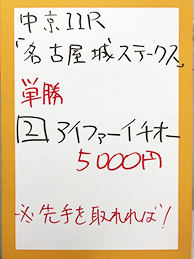 中京11R
「名古屋城ステークス」
単勝
2 アイファーイチオー
5000円
※先手を取れれば!